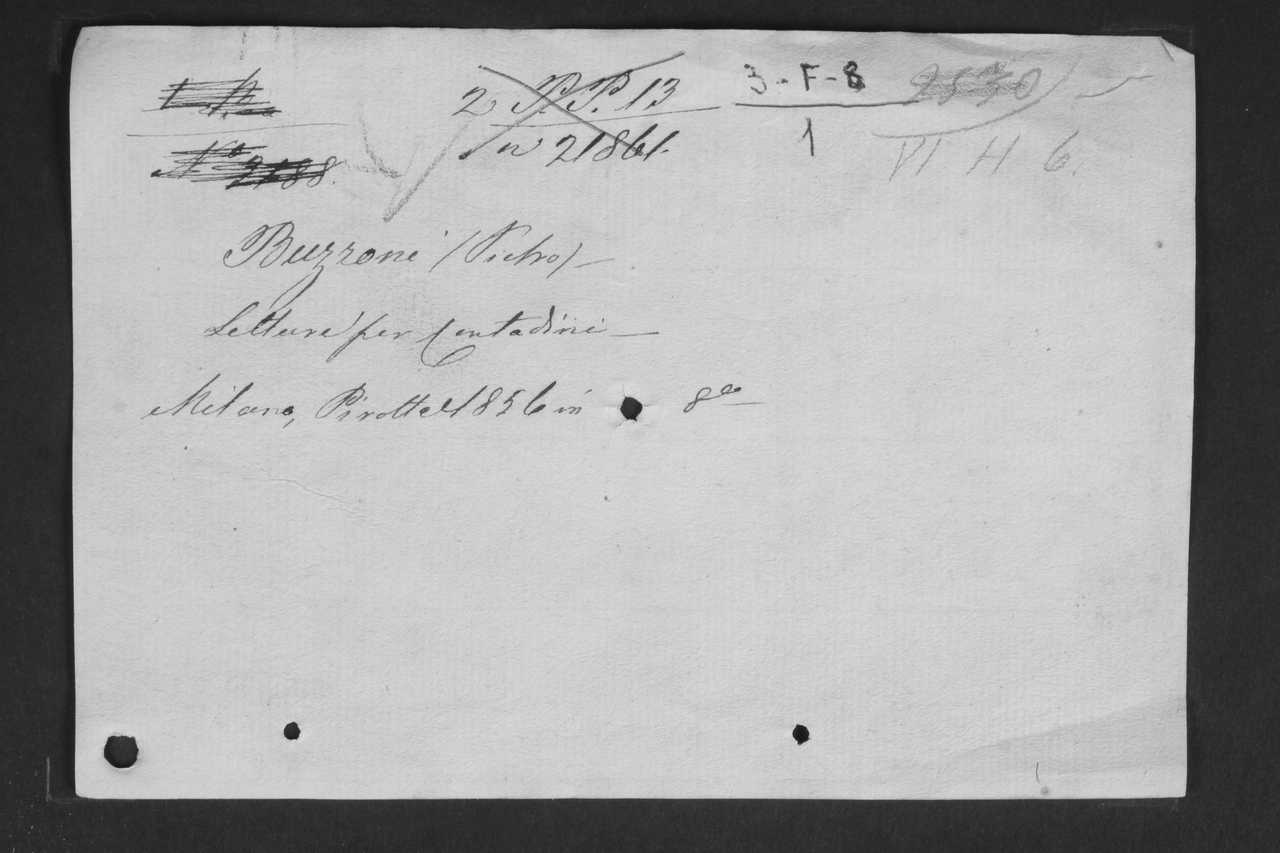 2 P.P. 13
n 21861.
3-F-8
1
VI H 6.
Nº 2188.
Buzzoni (Pietro)
Letture per Contadini
Milano, Pirotta 1856 in 8º